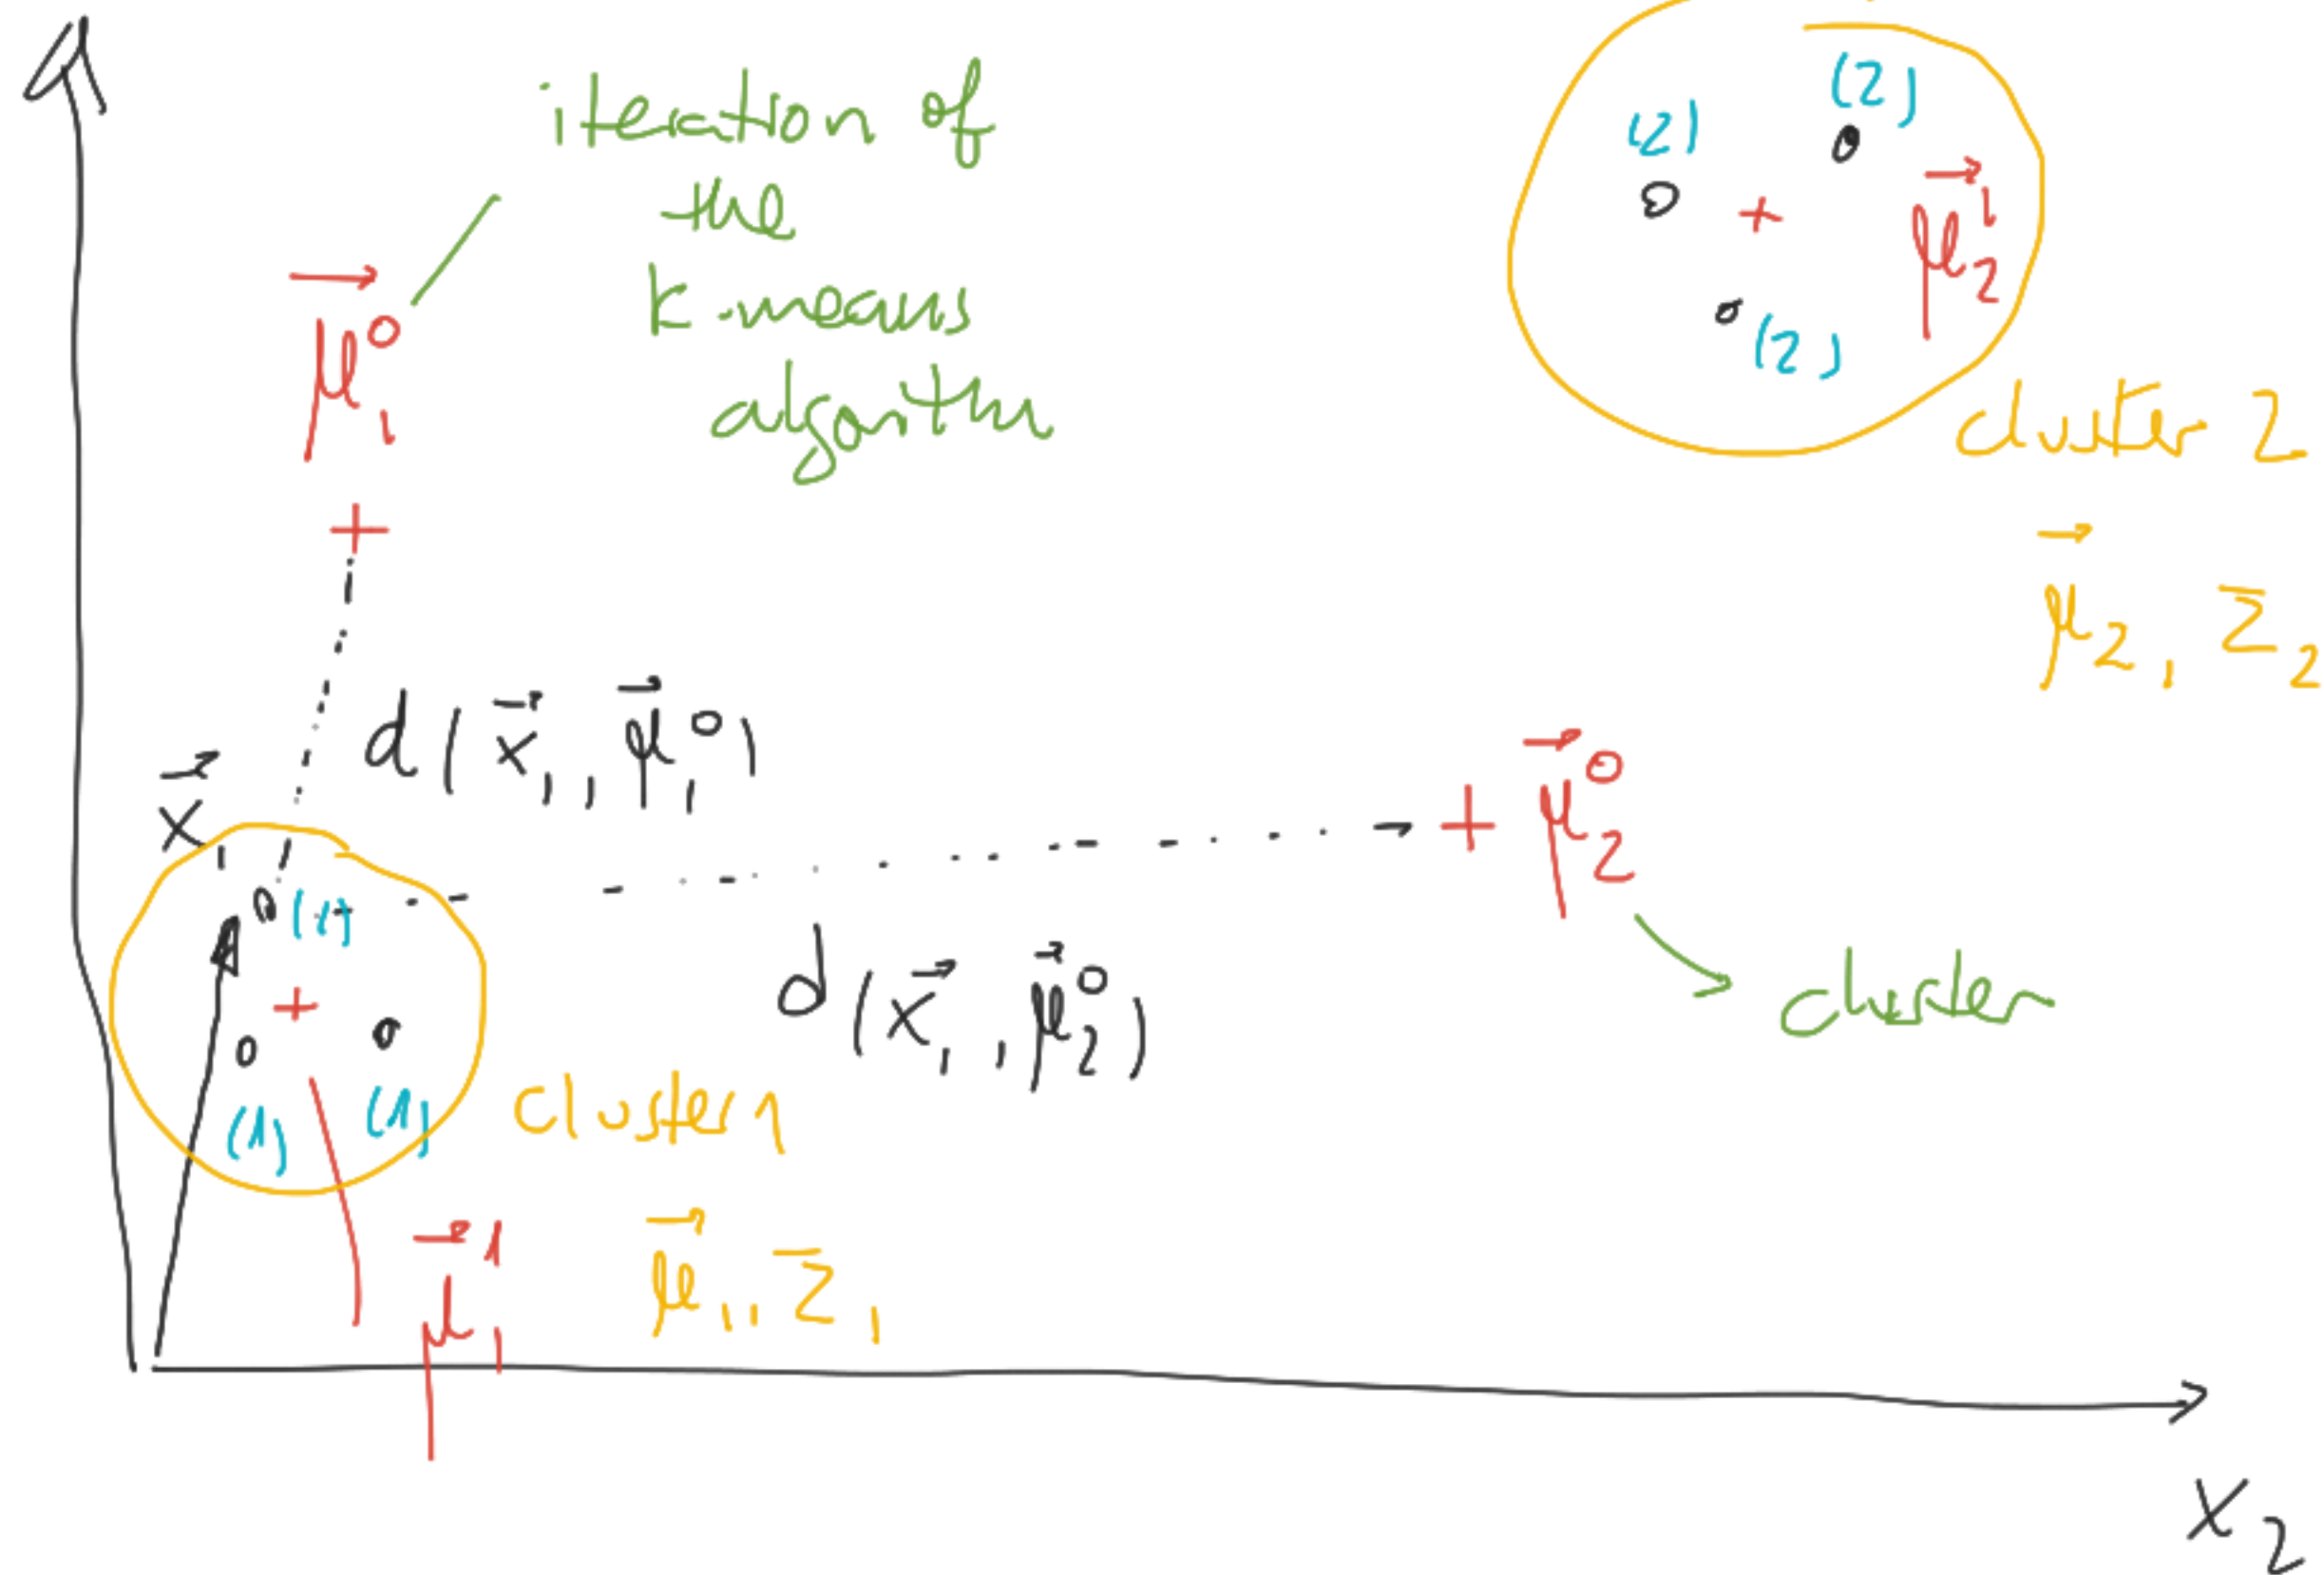 iteration of
the
k-means
algorithm
μ⃗₁⁰
(2)
(2)
μ⃗₂¹
(2)
cluster 2
μ⃗₂, Σ₂
d(x⃗₁, μ⃗₁⁰)
x⃗₁
μ⃗₂⁰
(1)
d(x⃗₁, μ⃗₂⁰)
cluster
(1)
(1)
cluster 1
μ⃗₁¹
μ⃗₁, Σ₁
x₂